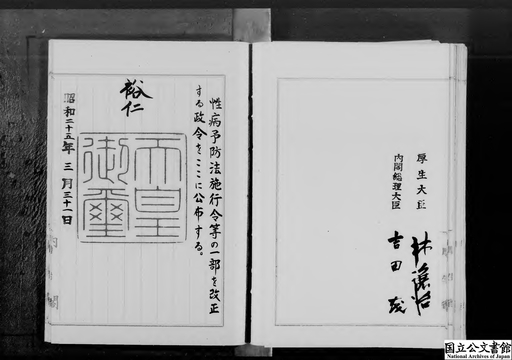 性病予防法施行令等の一部を改正
する政令をここに公布する。
裕仁
天皇
御璽
昭和二十五年三月三十一日
厚生大臣
林譲治
内閣総理大臣
吉田茂
国立公文書館
National Archives of Japan